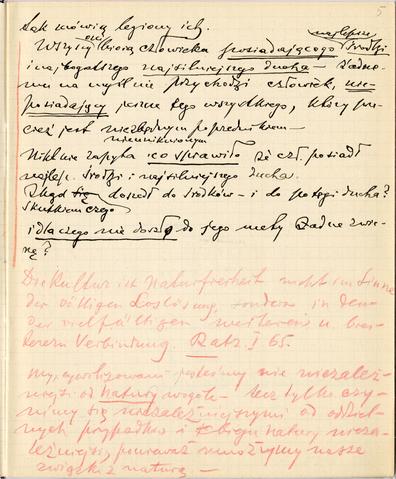 5
Tak mówią legiony ich.
Wszyscy oni biorą człowieka posiadającego najlepsze środki
i najbogatszego najsilniejszego ducha — żadne-
mu na myśl nie przychodzi człowiek, nie-
posiadający jeszcze tego wszystkiego, który prze-
cież jest niezbędnym poprzednikiem —
nieuniknionym
Nikt nie zapyta co sprawiło że czł. posiadł
najlep. środki i najsilniejszego ducha.
Skąd się doszedł do środków — i do potęgi ducha?
Skutkiem czego
i dlaczego nie doszło do jego mety żadne zwie-
rzę?
Die Kultur ist Naturfreiheit nicht im Sinne
der völligen Loslösung, sondern in dem
der vielfältigen weiteren u. brei-
teren Verbindung. Ratz. I 65.
My, cywilizowani jesteśmy nie niezależ-
niejsi od natury wogóle — lecz tylko czy-
nimy się niezależniejszymi od oddziel-
nych przypadków i biegu natury nieza-
leżniejsi, ponieważ mnożymy nasze
związki z naturą —